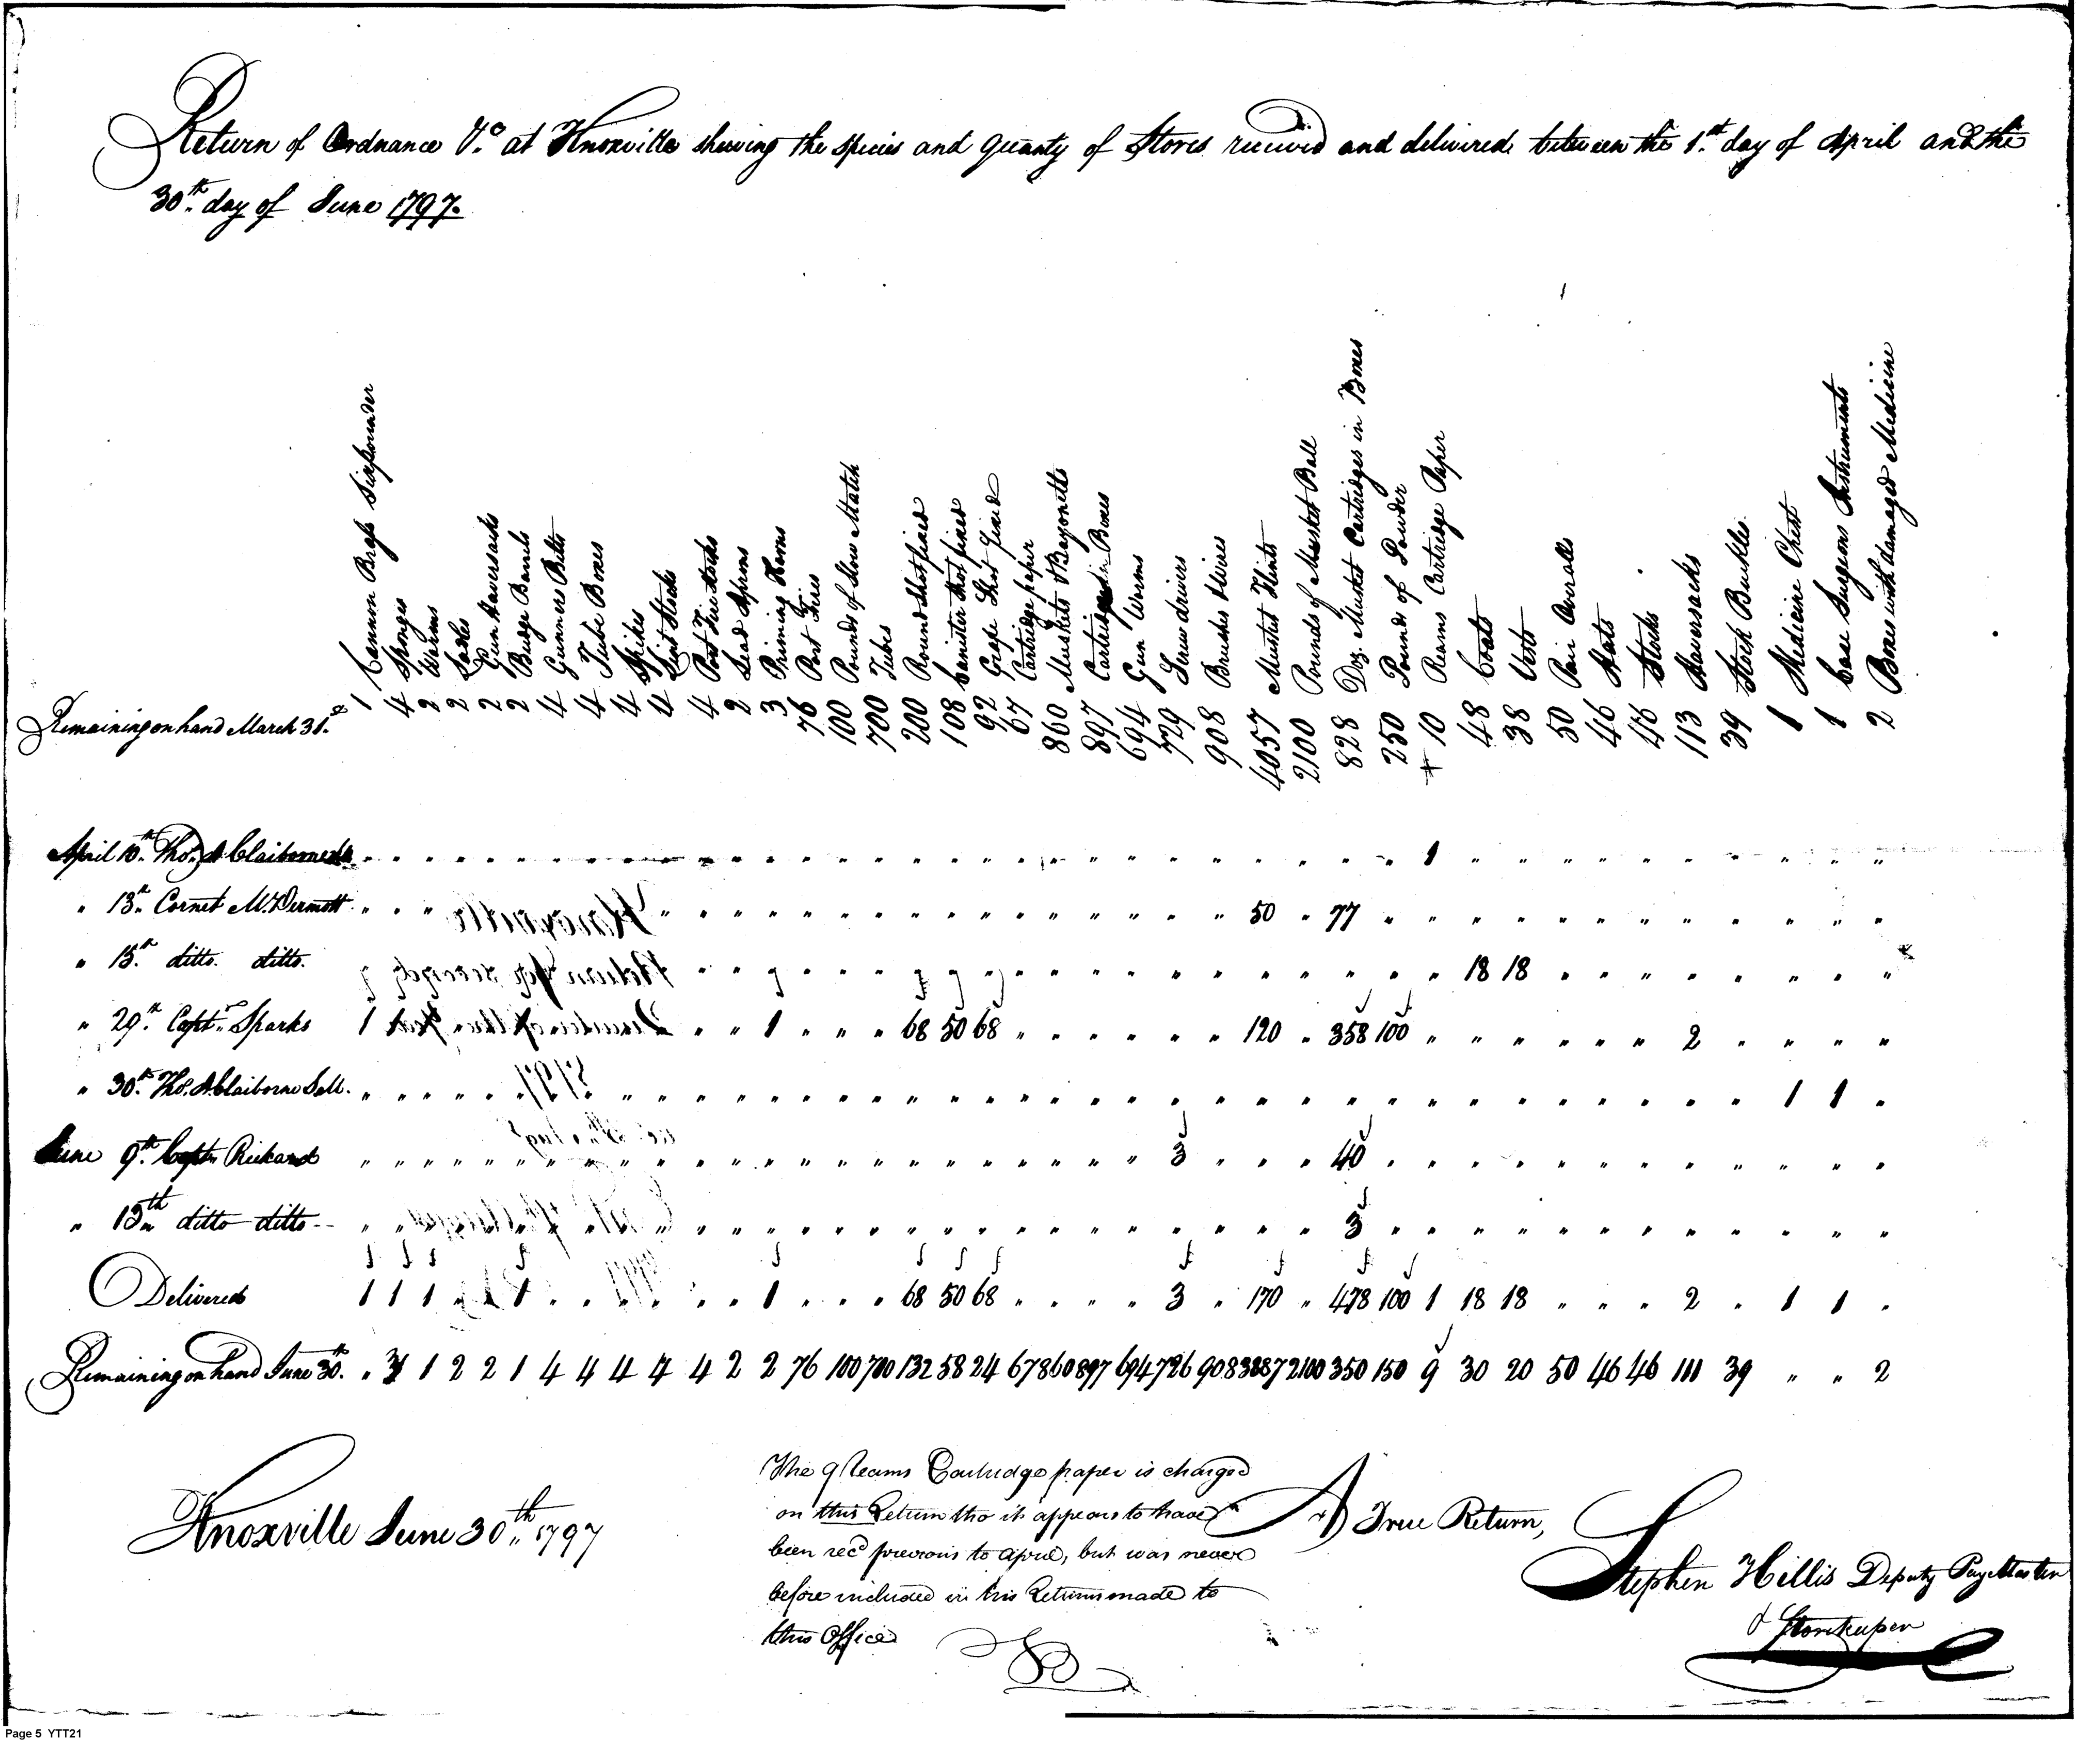 Return of Ordnance &c. at Knoxville shewing the species and quanty of Stores received and delivered between the 1st day of April and the
30th day of June 1797.
Remaining on hand March 31st
1 Cannon Brass Sixpounder
4 Sponges
2 Worms
2 Ladles
2 Gun Haversacks
2 Budge Barrels
4 Gunners Belts
4 Tube Boxes
4 Spikes
4 Lint Stocks
4 Port Fire Stocks
2 Lead Aprons
3 Priming Horns
76 Port Fires
100 Pounds of Slow Match
700 Tubes
200 Round Shot fixed
108 Canister Shot fixed
92 Grape Shot fixed
67 Cartridge paper
860 Muskets & Bayonetts
897 Cartridge Boxes
694 Gun Worms
729 Screw drivers
908 Brushes & Wires
4057 Musket Flints
2100 Pounds of Musket Ball
828 Doz. Musket Cartridges in Boxes
250 Pounds of Powder
+ 10 Reams Cartridge Paper
48 Coats
38 Vests
50 Pair Overalls
46 Hats
46 Stocks
113 Haversacks
39 Stock Buckles
1 Medicine Chest
1 Case Surgeons Instruments
2 Boxes with damaged Medicine
April 10th Thos. A Claiborne 1
" 13th Cornet McDermott 50 77
" 15th ditto. ditto. 18 18
" 29th Captn. Sparks 1 1 68 50 68 120 358 100 2
" 30th Thos. A Claiborne 1 1
June 9th Captn Rickard 3 40
" 15th ditto ditto 3
Delivered 1 1 1 1 1 68 50 68 3 170 478 100 1 18 18 2 1 1
Remaining on hand June 30th. " 3 1 2 2 1 4 4 4 4 4 2 2 76 100 700 132 58 24 67 860 897 694 726 908 3887 2100 350 150 9 30 20 50 46 46 111 39 " " 2
Knoxville June 30th 1797
The 9 Reams Cartridge paper is charged
on this Return tho it appears to have
been recd previous to April, but was never
before included in his Returns made to
this Office
A True Return,
Stephen Hillis Deputy PayMaster
& Storekeeper
Page 5 YTT21